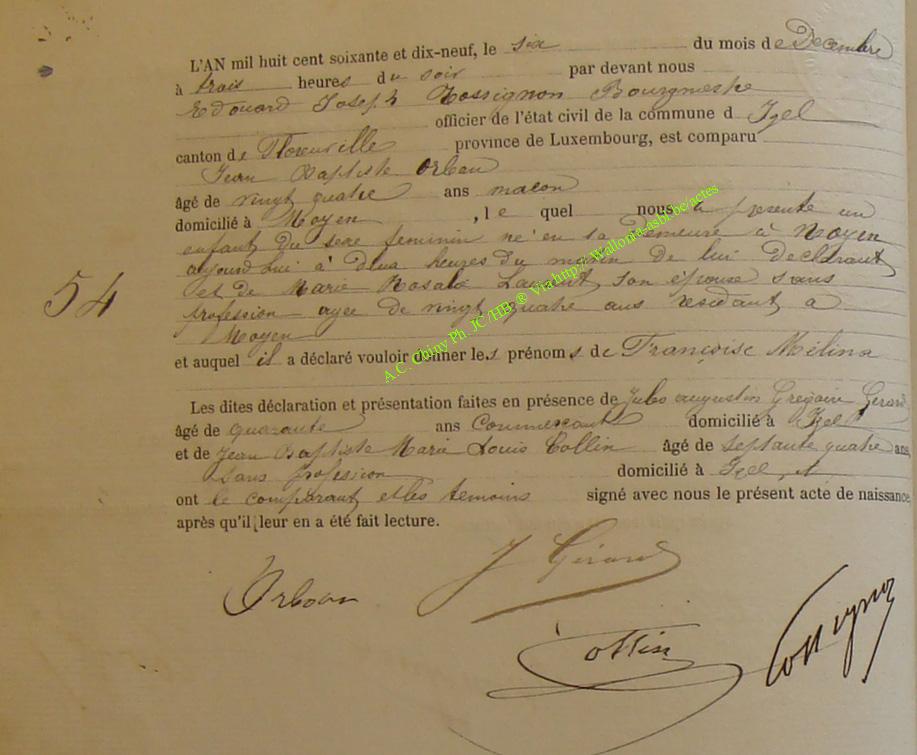 L'AN mil huit cent soixante et dix-neuf, le six du mois de Decembre
à trois heures du soir par devant nous
Edouard Joseph Rossignon Bourgmestre
officier de l'état civil de la commune d Izel
canton de Florenville province de Luxembourg, est comparu
Jean Baptiste Orban
âgé de vingt quatre ans macon
domicilié à Moyen , le quel nous a presente un
enfant du sexe feminin né en sa demeure à Moyen
aujourd'hui à deux heures du matin de lui declarant
et de Marie Rosalie Laurent son épouse sans
54
profession agee de vingt quatre ans residant a
Moyen
et auquel il a déclaré vouloir donner les prénoms de Françoise Mélina
Les dites déclaration et présentation faites en présence de Jules augustin Grégoire Gerard
âgé de quarante ans Commercant domicilié à Izel
et de Jean Baptiste Marie Louis Collin âgé de septante quatre ans,
sans profession domicilié à Izel, et
ont le comparant et les temoins signé avec nous le présent acte de naissance
après qu'il leur en a été fait lecture.
Orban J Gérard
Collin Rossignon
A.C. Chiny Ph. JC/HB ® Via http://Wallonia-asbl.be/actes